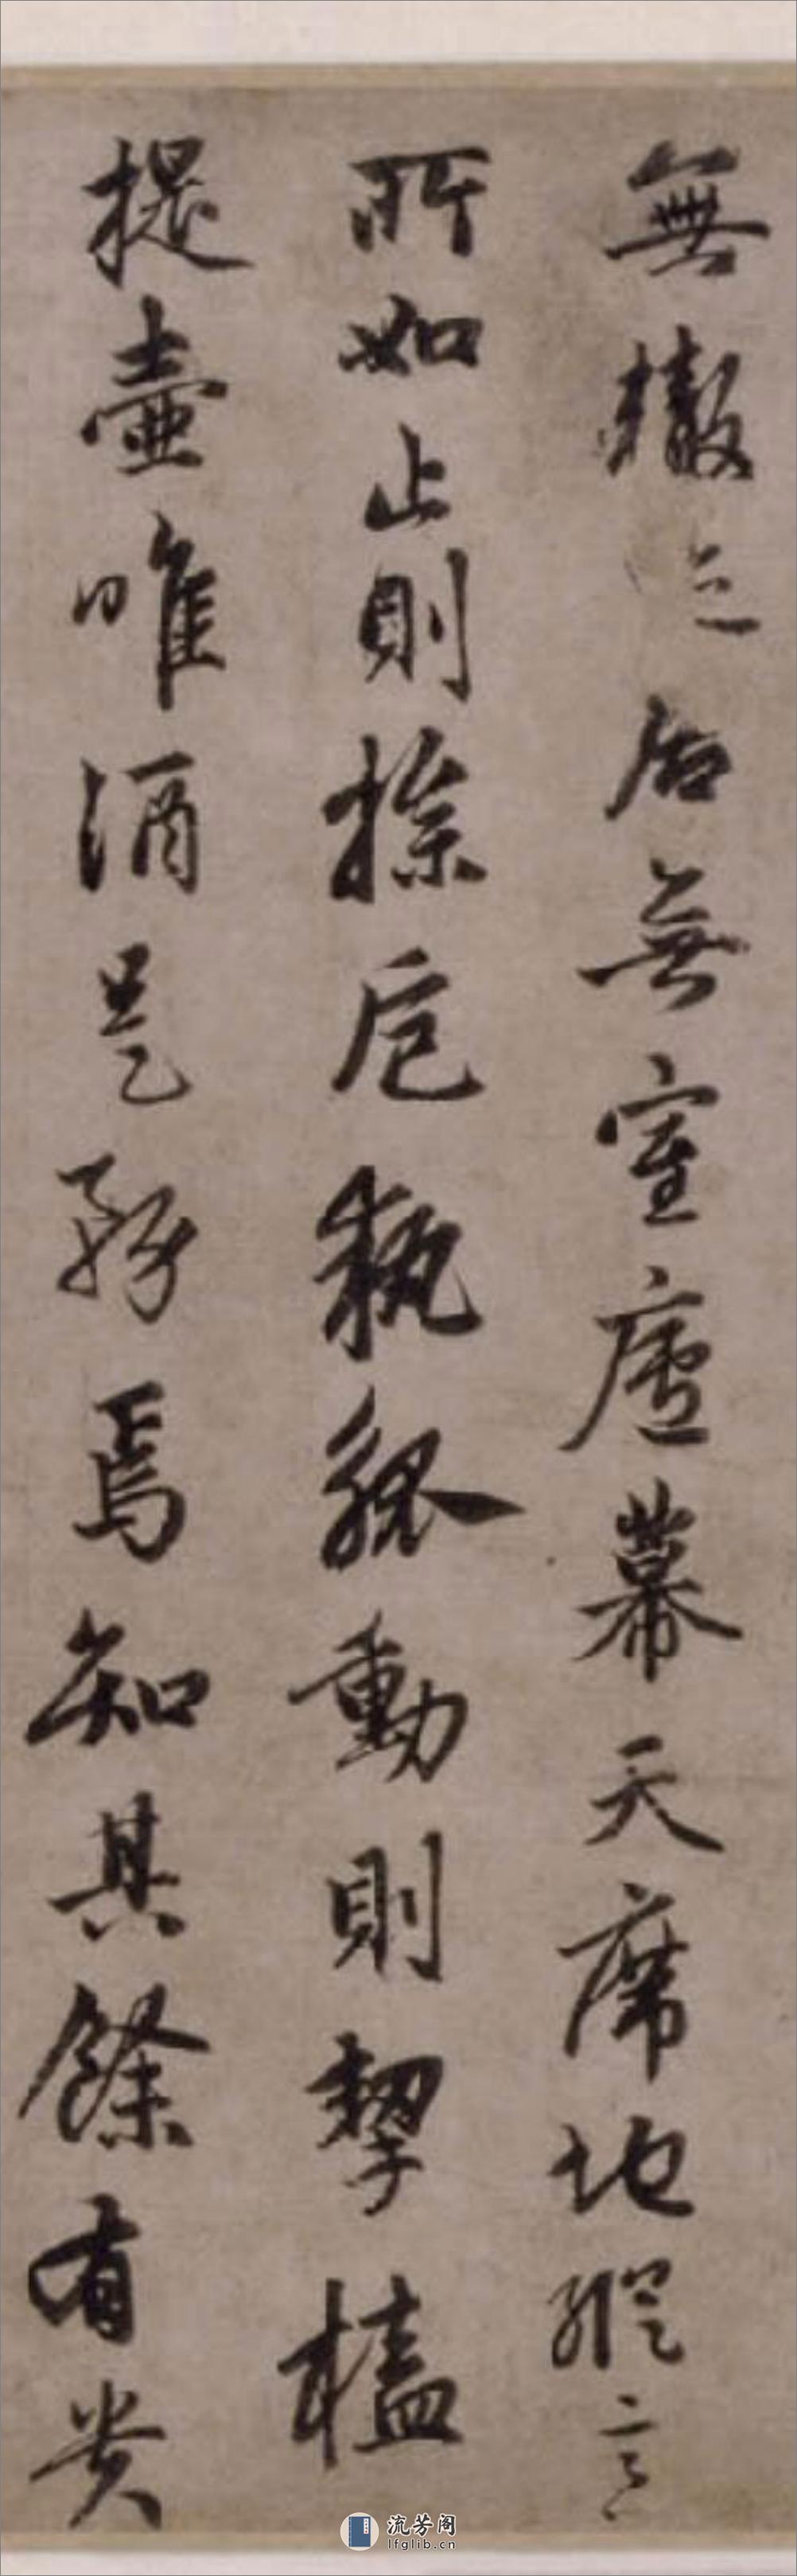 無轍居無室廬幕天席地縱意
所如止則操卮執觚動則挈榼
提壺唯酒是務焉知其餘有貴
流芳阁
lfglib.cn